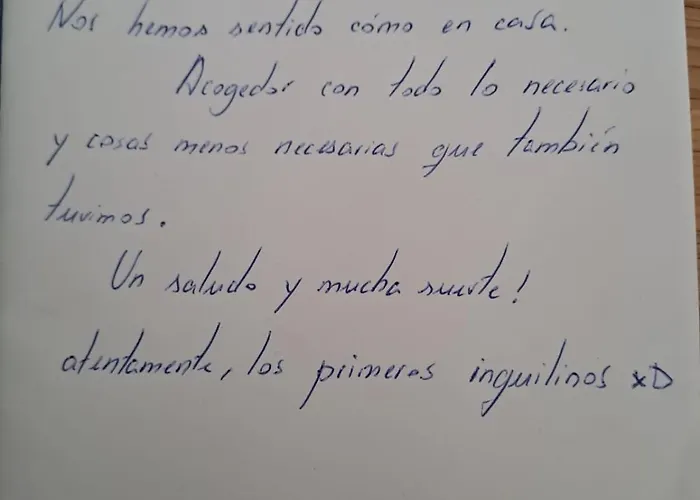 Nos hemos sentido cómo en casa.
Acogedor con todo lo necesario
y cosas menos necesarias que también
tuvimos.
Un saludo y mucha suerte!
atentamente, los primeros inquilinos xD